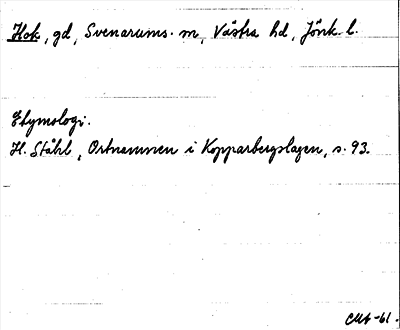 Hok, gd, Svenarums. sn, Västra hd, Jönk. l.
Etymologi.
H. Ståhl, Ortnamnen i Kopparbergslagen, s. 93.
CMt -61.